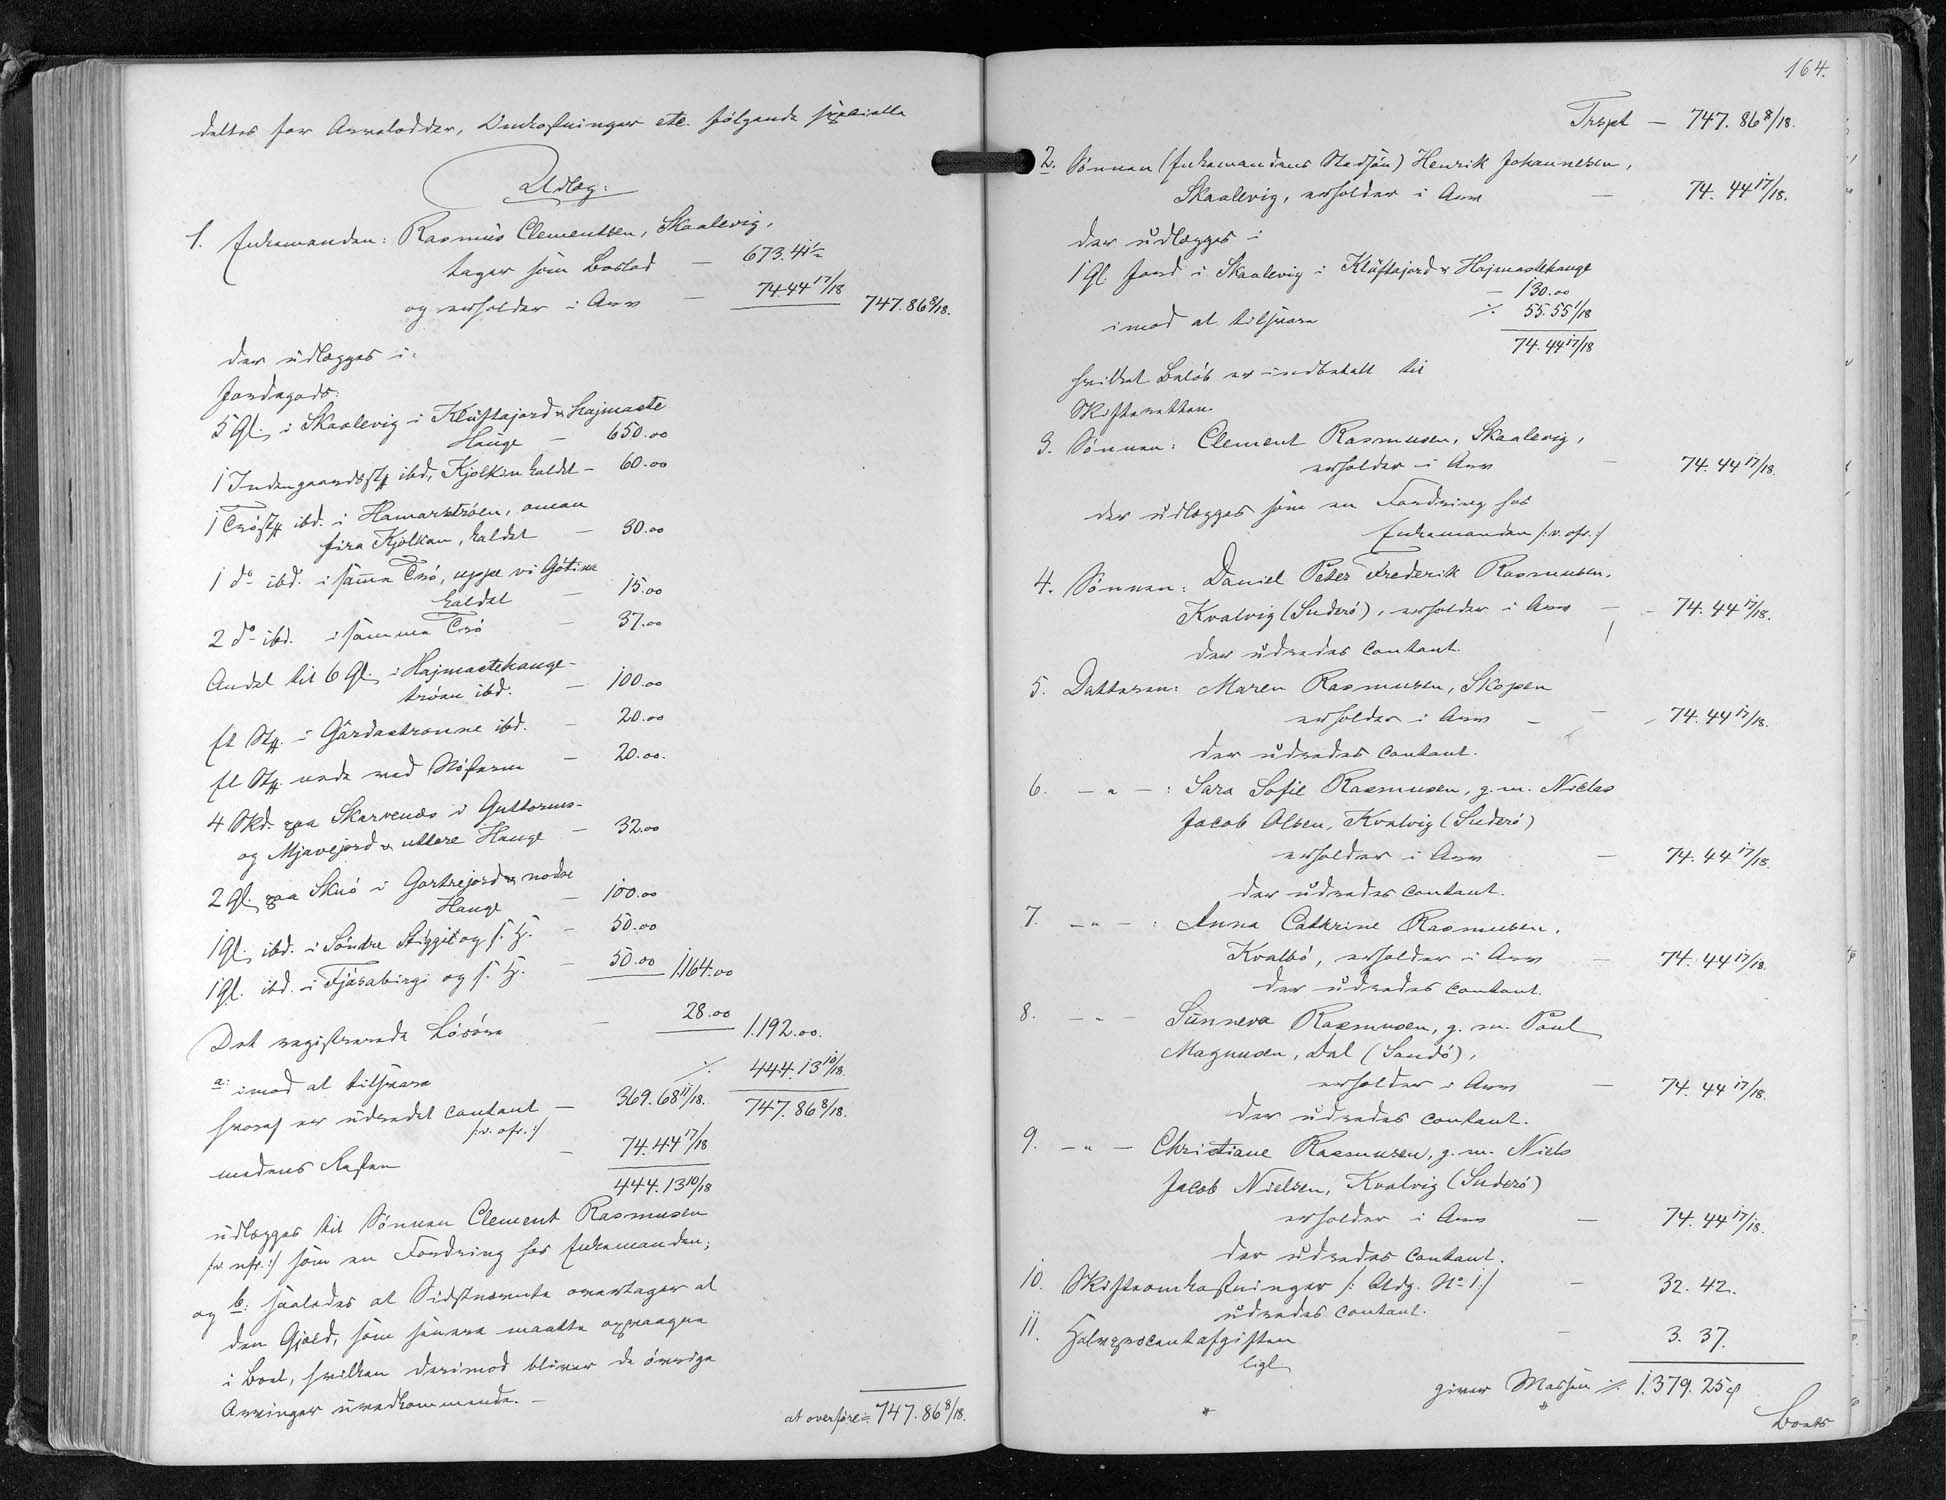 deltes for Arvelodder, Omkostninger etc. følgende specielle
Udlæg:
1. Enkemanden: Rasmus Clementsen, Skaalevig,
tager som Boslod — 673.41½
og erholder i Arv — 74.44 17/18 747.86 8/18.
der udlægges i:
Jordegods:
5 Gl. i Skaalevig i Klüftajord & Hajmaste
Hauge — 650.00
1 Indengaardsst. ibd., Kjolkin kaldet — 60.00
1 Tröst. ibd. i Hamarströen, oman
fira Kjolkan, kaldet — 30.00
1 do ibd. i samme Trö, uppe vi Götina
kaldet — 15.00
2 do ibd. i samme Trö — 37.00
Andel til 6 Gl. i Hajmastehauge-
tröen ibd. — 100.00
et St. i Gärdastronne ibd. — 20.00
et St. nede ved Nösterne — 20.00.
4 Skd. paa Skarvenæs i Guttorms-
og Mjavejord & uttere Hauge — 32.00
2 Gl. paa Skuö i Gortrejord & nodre
Hauge — 100.00
1 Gl. ibd. i Söndre Stiggit og s. H. — 50.00
1 Gl. ibd. i Fjarabirgi og s. H. — 50.00 1164.00
Det registrerede Lösöre — 28.00 1.192.00.
a: imod at tilsvare ./. 444.13 10/18.
hvoraf er udredet contant — 369.68 11/18. 747.86 8/18.
/:v. ofr.:/
medens Resten — 74.44 17/18
444.13 10/18
udlægges til Sönnen Clement Rasmusen
/:v. nfr.:/ som en Fordring hos Enkemanden;
og b: saaledes at Sidstnævnte overtager al
den Gjæld, som senere maatte opvaagne
i Boet, hvilken derimod bliver de övrige
Arvinger uvedkommende. —
at overføre = 747.86 8/18.
164.
Trspt — 747.86 8/18.
2. Sönnen (Enkemandens Stedsön) Henrik Johannesen,
Skaalevig, erholder i Arv — 74.44 17/18.
der udlægges i
1 Gl. Jord i Skaalevig i Klüftajord & Hajmastehauge
— 130.00
imod at tilsvare ./. 55.55 1/18
74.44 17/18
hvilket Beløb er indbetalt til
Skifteretten.
3. Sönnen: Clement Rasmusen, Skaalevig,
erholder i Arv — 74.44 17/18.
der udlægges som en Fordring hos
Enkemanden /:v. ofr.:/
4. Sönnen: Daniel Peter Frederik Rasmusen,
Kvalvig (Suderö), erholder i Arv — 74.44 17/18.
der udredes contant.
5. Datteren: Maren Rasmusen, Skopen
erholder i Arv — 74.44 17/18.
der udredes contant.
6. — " — : Sara Sofie Rasmusen, g. m. Niclas
Jacob Olsen, Kvalvig (Suderö)
erholder i Arv — 74.44 17/18.
der udredes contant.
7. — " — : Anna Cathrine Rasmusen,
Kvalbö, erholder i Arv — 74.44 17/18.
der udredes contant.
8. — " — Sünneva Rasmusen, g. m. Poul
Magnusen, Dal (Sandö),
erholder i Arv — 74.44 17/18.
der udredes contant.
9. — " — Christiane Rasmusen, g. m. Niels
Jacob Nielsen, Kvalvig (Suderö)
erholder i Arv — 74.44 17/18.
der udredes contant.
10. Skifteomkostninger /: Udg. No 1:/ — 32.42.
udredes contant.
11. Halvprocentafgiften — 3.37.
ligl.
giver Massen = 1.379.25 ø
Boets